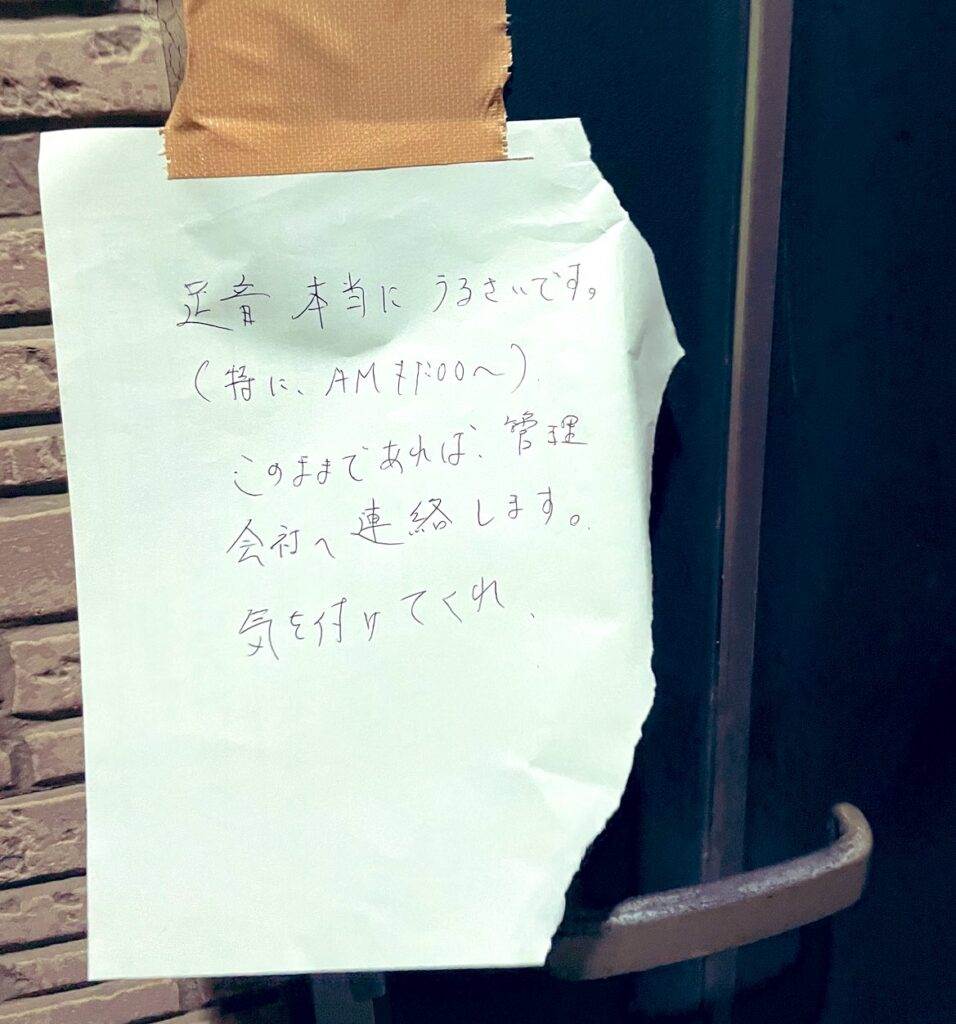 足音 本当に うるさいです。
(特に、AM :00～)
このままであれば、管理
会社へ連絡します。
気を付けてくれ、